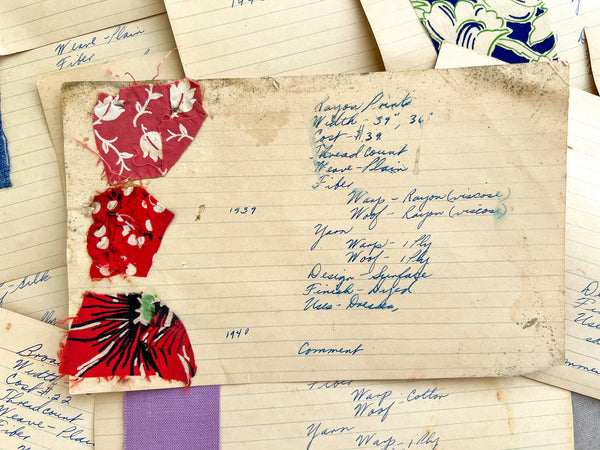 1940
Weave - Plain
Fiber
Rayon Prints
Width - 39", 36"
Cost - $.39
Thread count
Weave - Plain
Fiber
Warp - Rayon (viscose)
Woof - Rayon (viscose)
1939
Yarn
Warp - 1 Ply
Woof - 1 Ply
Design - Surface
Finish - dyed
Uses - Dresses
1940
Comment
Silk
Width
Cost $.22
Thread count
Weave - Plain
Fiber
Fiber
Warp - Cotton
Woof -
Yarn
Warp - 1 Ply
Fiber
Yarn